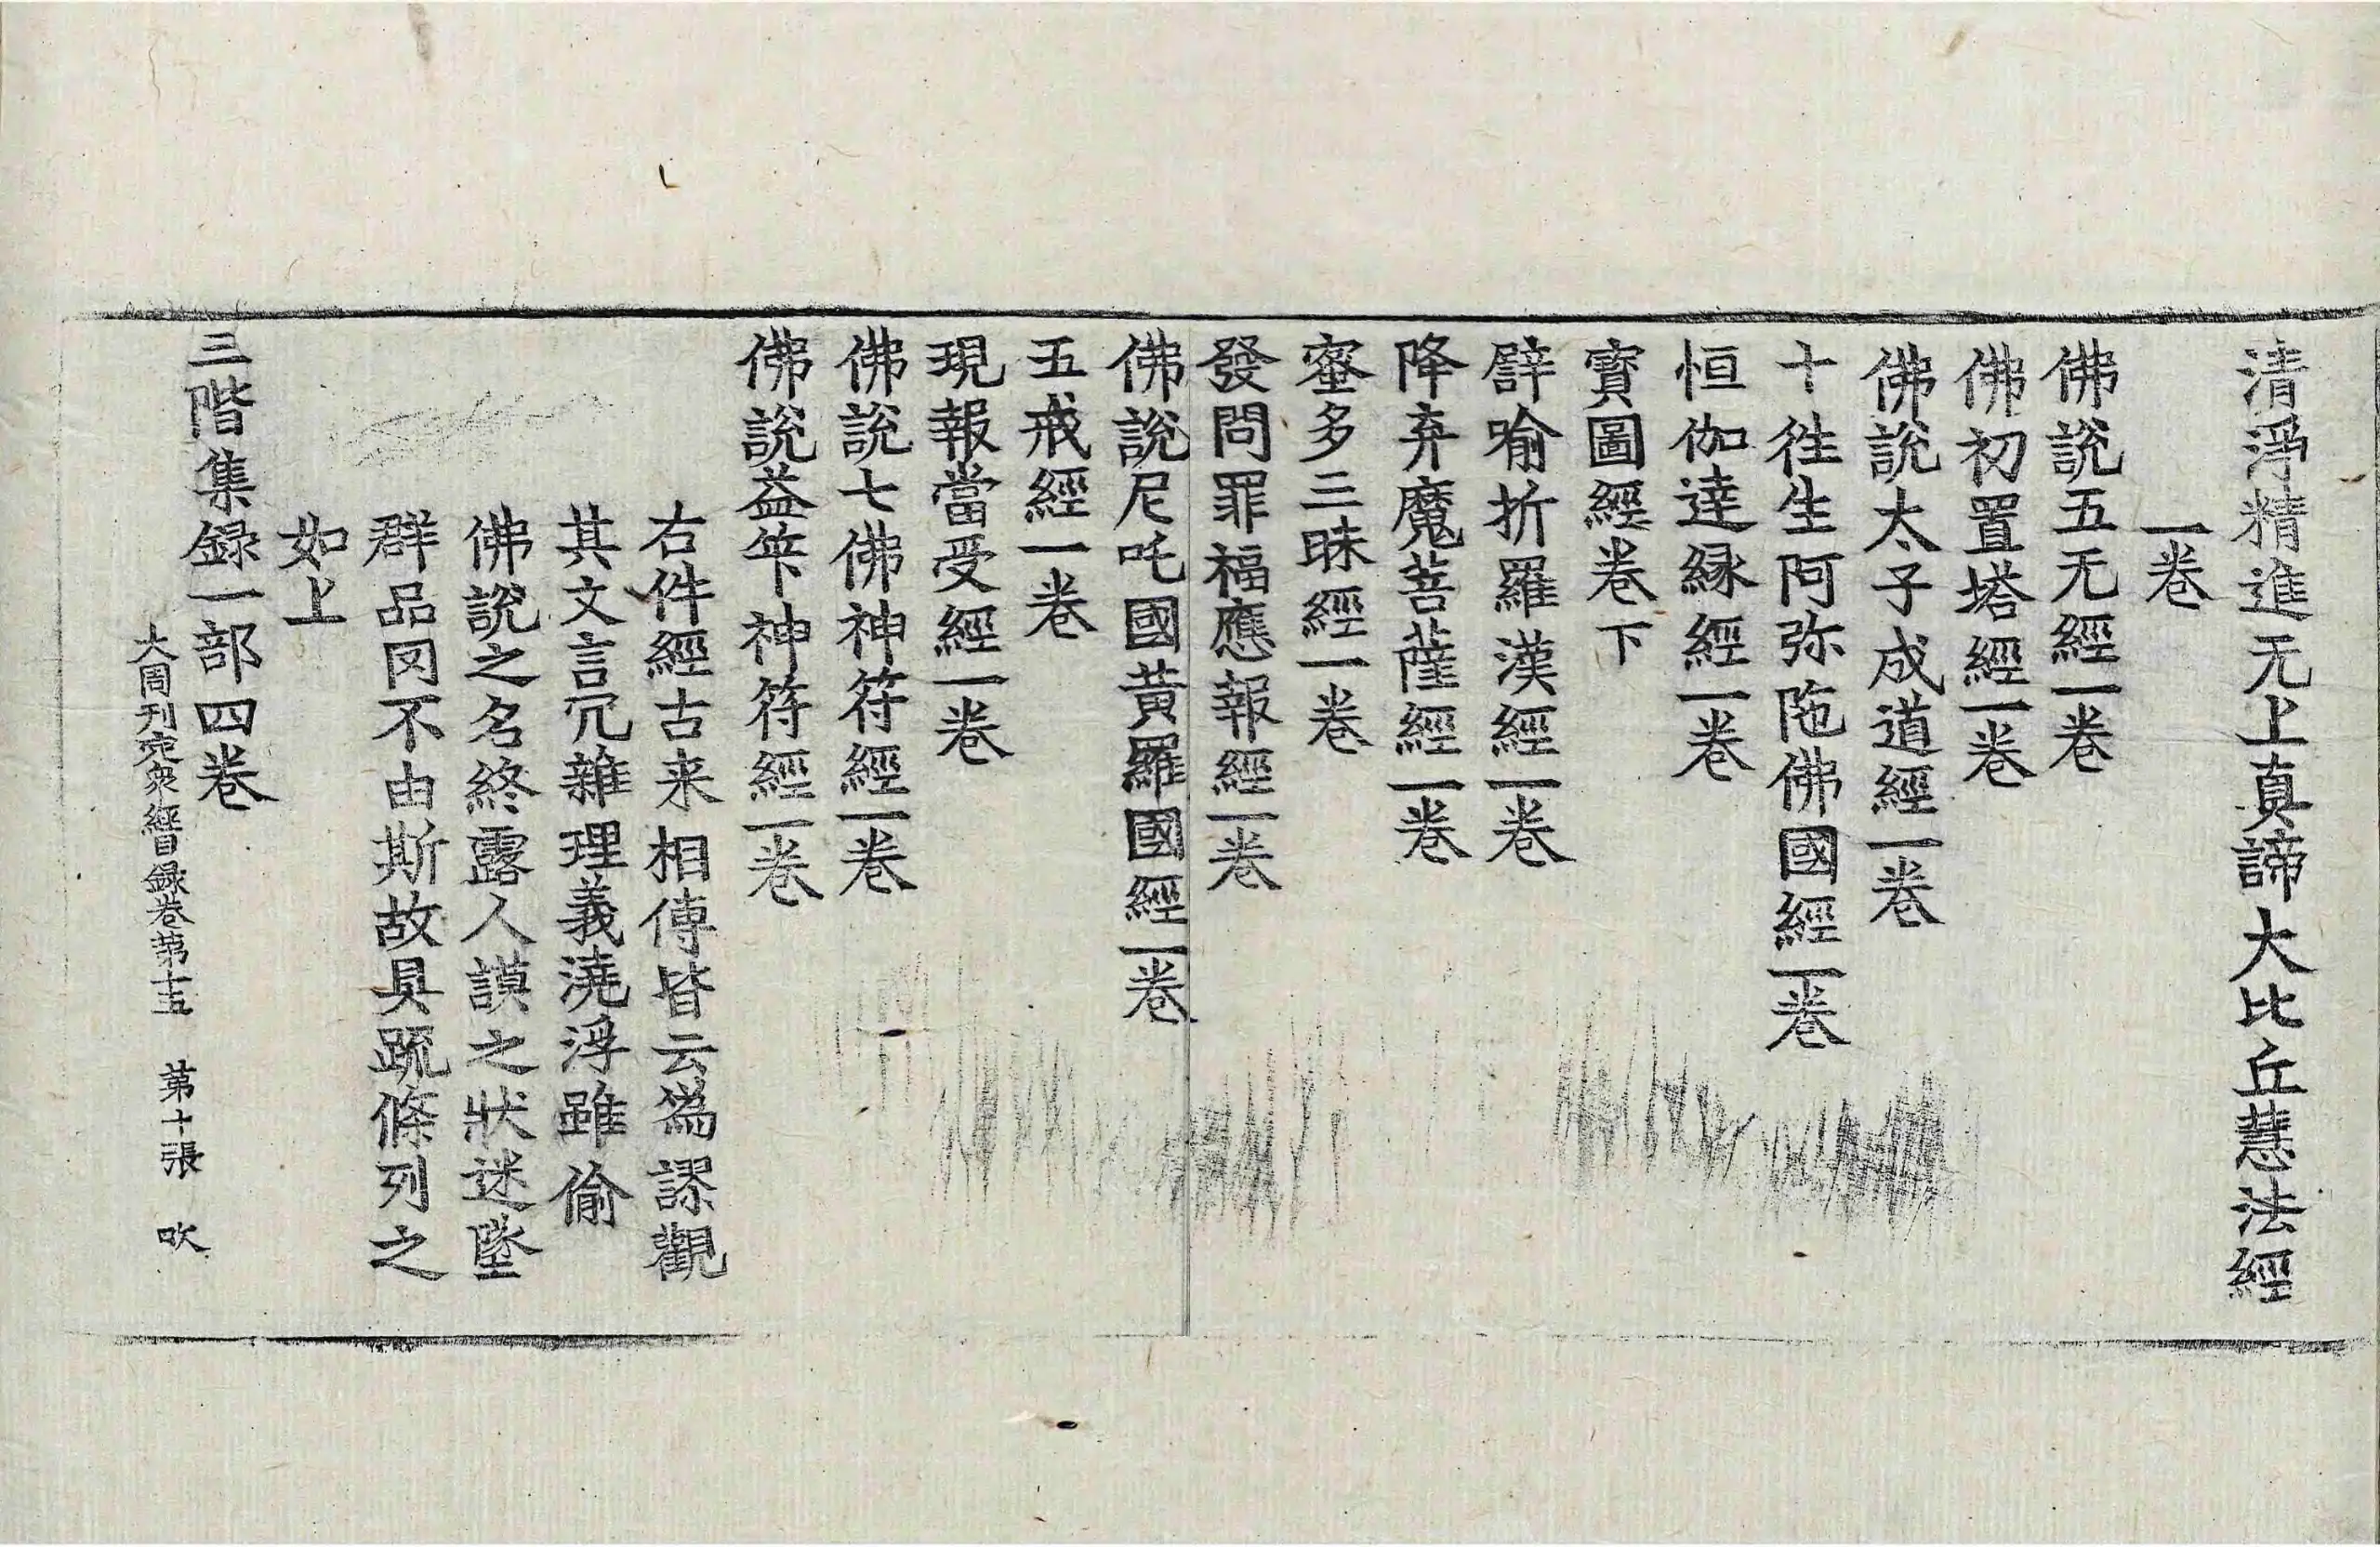 清淨精進无上真諦大比丘慧法經
一卷
佛說五无經一卷
佛初置塔經一卷
佛說太子成道經一卷
十往生阿弥陁佛國經一卷
恒伽達緣經一卷
寳圖經卷下
辟喻折羅漢經一卷
降弃魔菩薩經一卷
蜜多三昧經一卷
發問罪福應報經一卷
佛說尼吒國黃羅國經一卷
五戒經一卷
現報當受經一卷
佛說七佛神符經一卷
佛說益筭神符經一卷
右件經古来相傳皆云為謬觀
其文言冗雜理義澆浮雖偷
佛說之名終露人謨之狀迷墜
群品罔不由斯故具䟽條列之
如上
三階集録一部四卷
大周刊定衆經目録卷第十五 第十張 吹